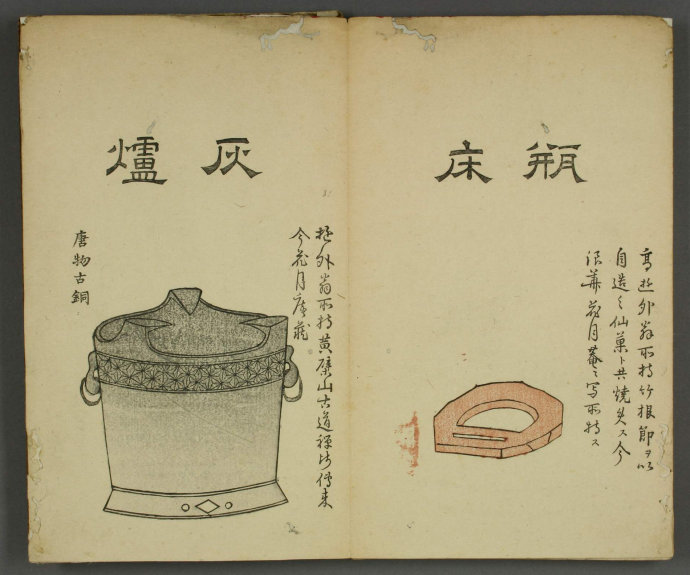 瓶床
高遊外翁所持竹根節ヲ以
自造之仙菓ト共焼失ス今
浪華花月菴之写所持ス
灰爐
遊外翁所持黄檗山古道禅師傳来
今花月庵蔵
唐物古銅